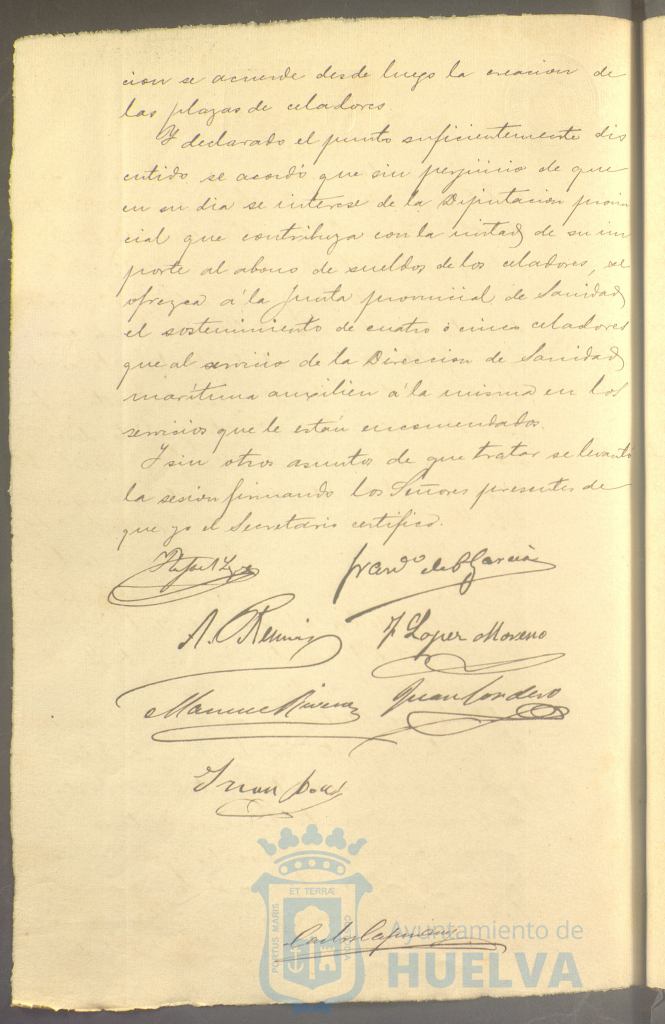 cion se acuerde desde luego la creacion de
las plazas de celadores.
Y declarado el punto suficientemente dis
cutido se acordó que sin perjuicio de que
en su dia se interese de la Diputacion provin
cial que contribuya con la mitad de su im
porte al abono de sueldos de los celadores, se
ofrezca á la Junta provincial de Sanidad
el sostenimiento de cuatro ó cinco celadores
que al servicio de la Direccion de Sanidad
marítima auxilien á la misma en los
servicios que le están encomendados.
Y sin otros asuntos de que tratar se levantó
la sesion firmando los Señores presentes de
que yo el Secretario certifico.
Rafael
Franco de P Garcia
A.
F Lopez Moreno
Manuel Rivera
Juan Cordero
Juan
ET TERRÆ
PORTUS MARIS
CUSTODIA
Ayuntamiento de
HUELVA